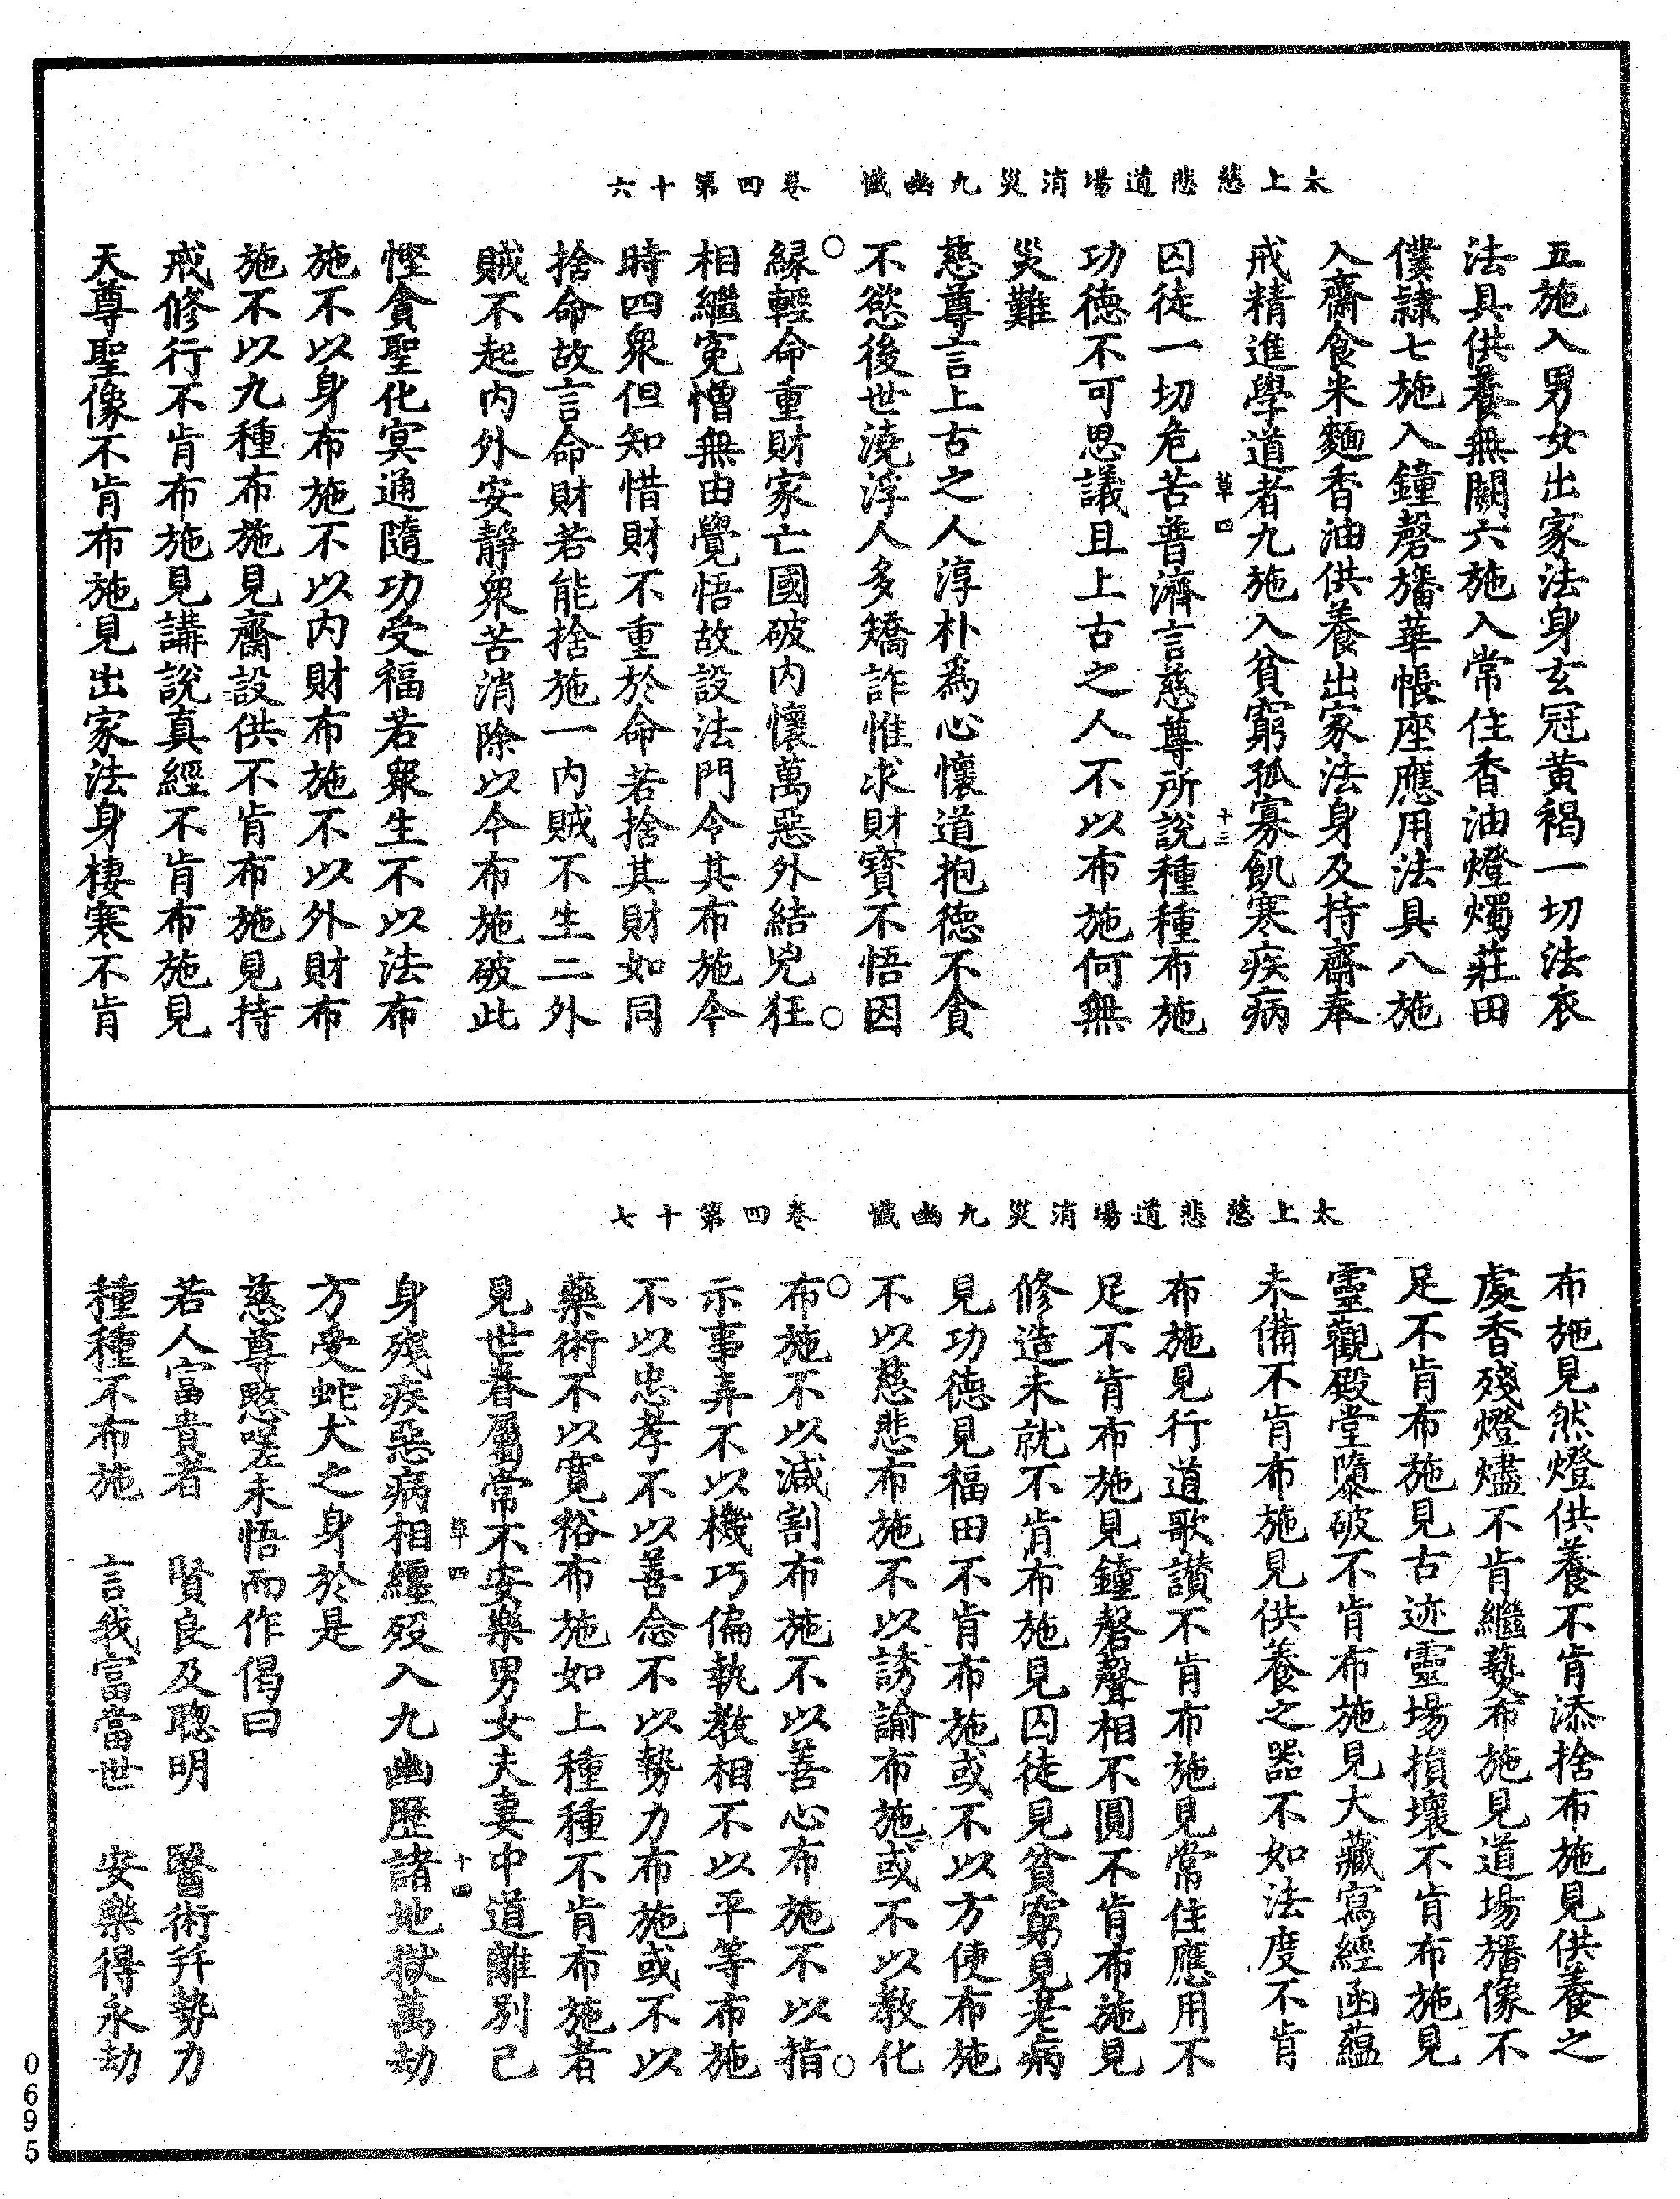 太上慈悲道場消災九幽懺　卷四第十六
五施入男女出家法身玄冠黃褐一切法衣
法具供養無闕六施入常住香油燈燭莊田
僕隸七施入鐘磬旛華帳座應用法具八施
入齋食米麵香油供養出家法身及持齋奉
戒精進學道者九施入貧窮孤寡飢寒疾病
草四　十三
囚徒一切危苦普濟言慈尊所說種種布施
功德不可思議且上古之人不以布施何無
災難
慈尊言上古之人淳朴為心懷道抱德不貪
不慾後世澆浮人多矯詐惟求財寶不悟因
緣輕命重財家亡國破內懷萬惡外結兇狂
相繼冤憎無由覺悟故設法門令其布施令
時四衆但知惜財不重於命若捨其財如同
捨命故言命財若能捨施一內賊不生二外
賊不起內外安靜衆苦消除以今布施破此
慳貪聖化冥通隨功受福若衆生不以法布
施不以身布施不以內財布施不以外財布
施不以九種布施見齋設供不肯布施見持
戒修行不肯布施見講說真經不肯布施見
天尊聖像不肯布施見出家法身棲寒不肯
太上慈悲道場消災九幽懺　卷四第十七
布施見然燈供養不肯添捨布施見供養之
處香殘燈燼不肯繼爇布施見道場旛像不
足不肯布施見古迹靈場損壞不肯布施見
靈觀殿堂隳破不肯布施見大藏寫經函蘊
未備不肯布施見供養之器不如法度不肯
布施見行道歌讚不肯布施見常住應用不
足不肯布施見鐘磬聲相不圓不肯布施見
修造未就不肯布施見囚徒見貧窮見老病
見功德見福田不肯布施或不以方便布施
不以慈悲布施不以誘諭布施或不以教化
布施不以減割布施不以善心布施不以指
示事弄不以機巧偏執教相不以平等布施
不以忠孝不以善念不以勢力布施或不以
藥術不以寬裕布施如上種種不肯布施者
見世眷屬常不安樂男女夫妻中道離別己
草四　十四
身殘疾惡病相纏歿入九幽歷諸地獄萬劫
方受蛇犬之身於是
慈尊愍嗟未悟而作偈曰
若人富貴者　賢良及聰明　醫術幷勢力
種種不布施　言我富當世　安樂得永劫
0695